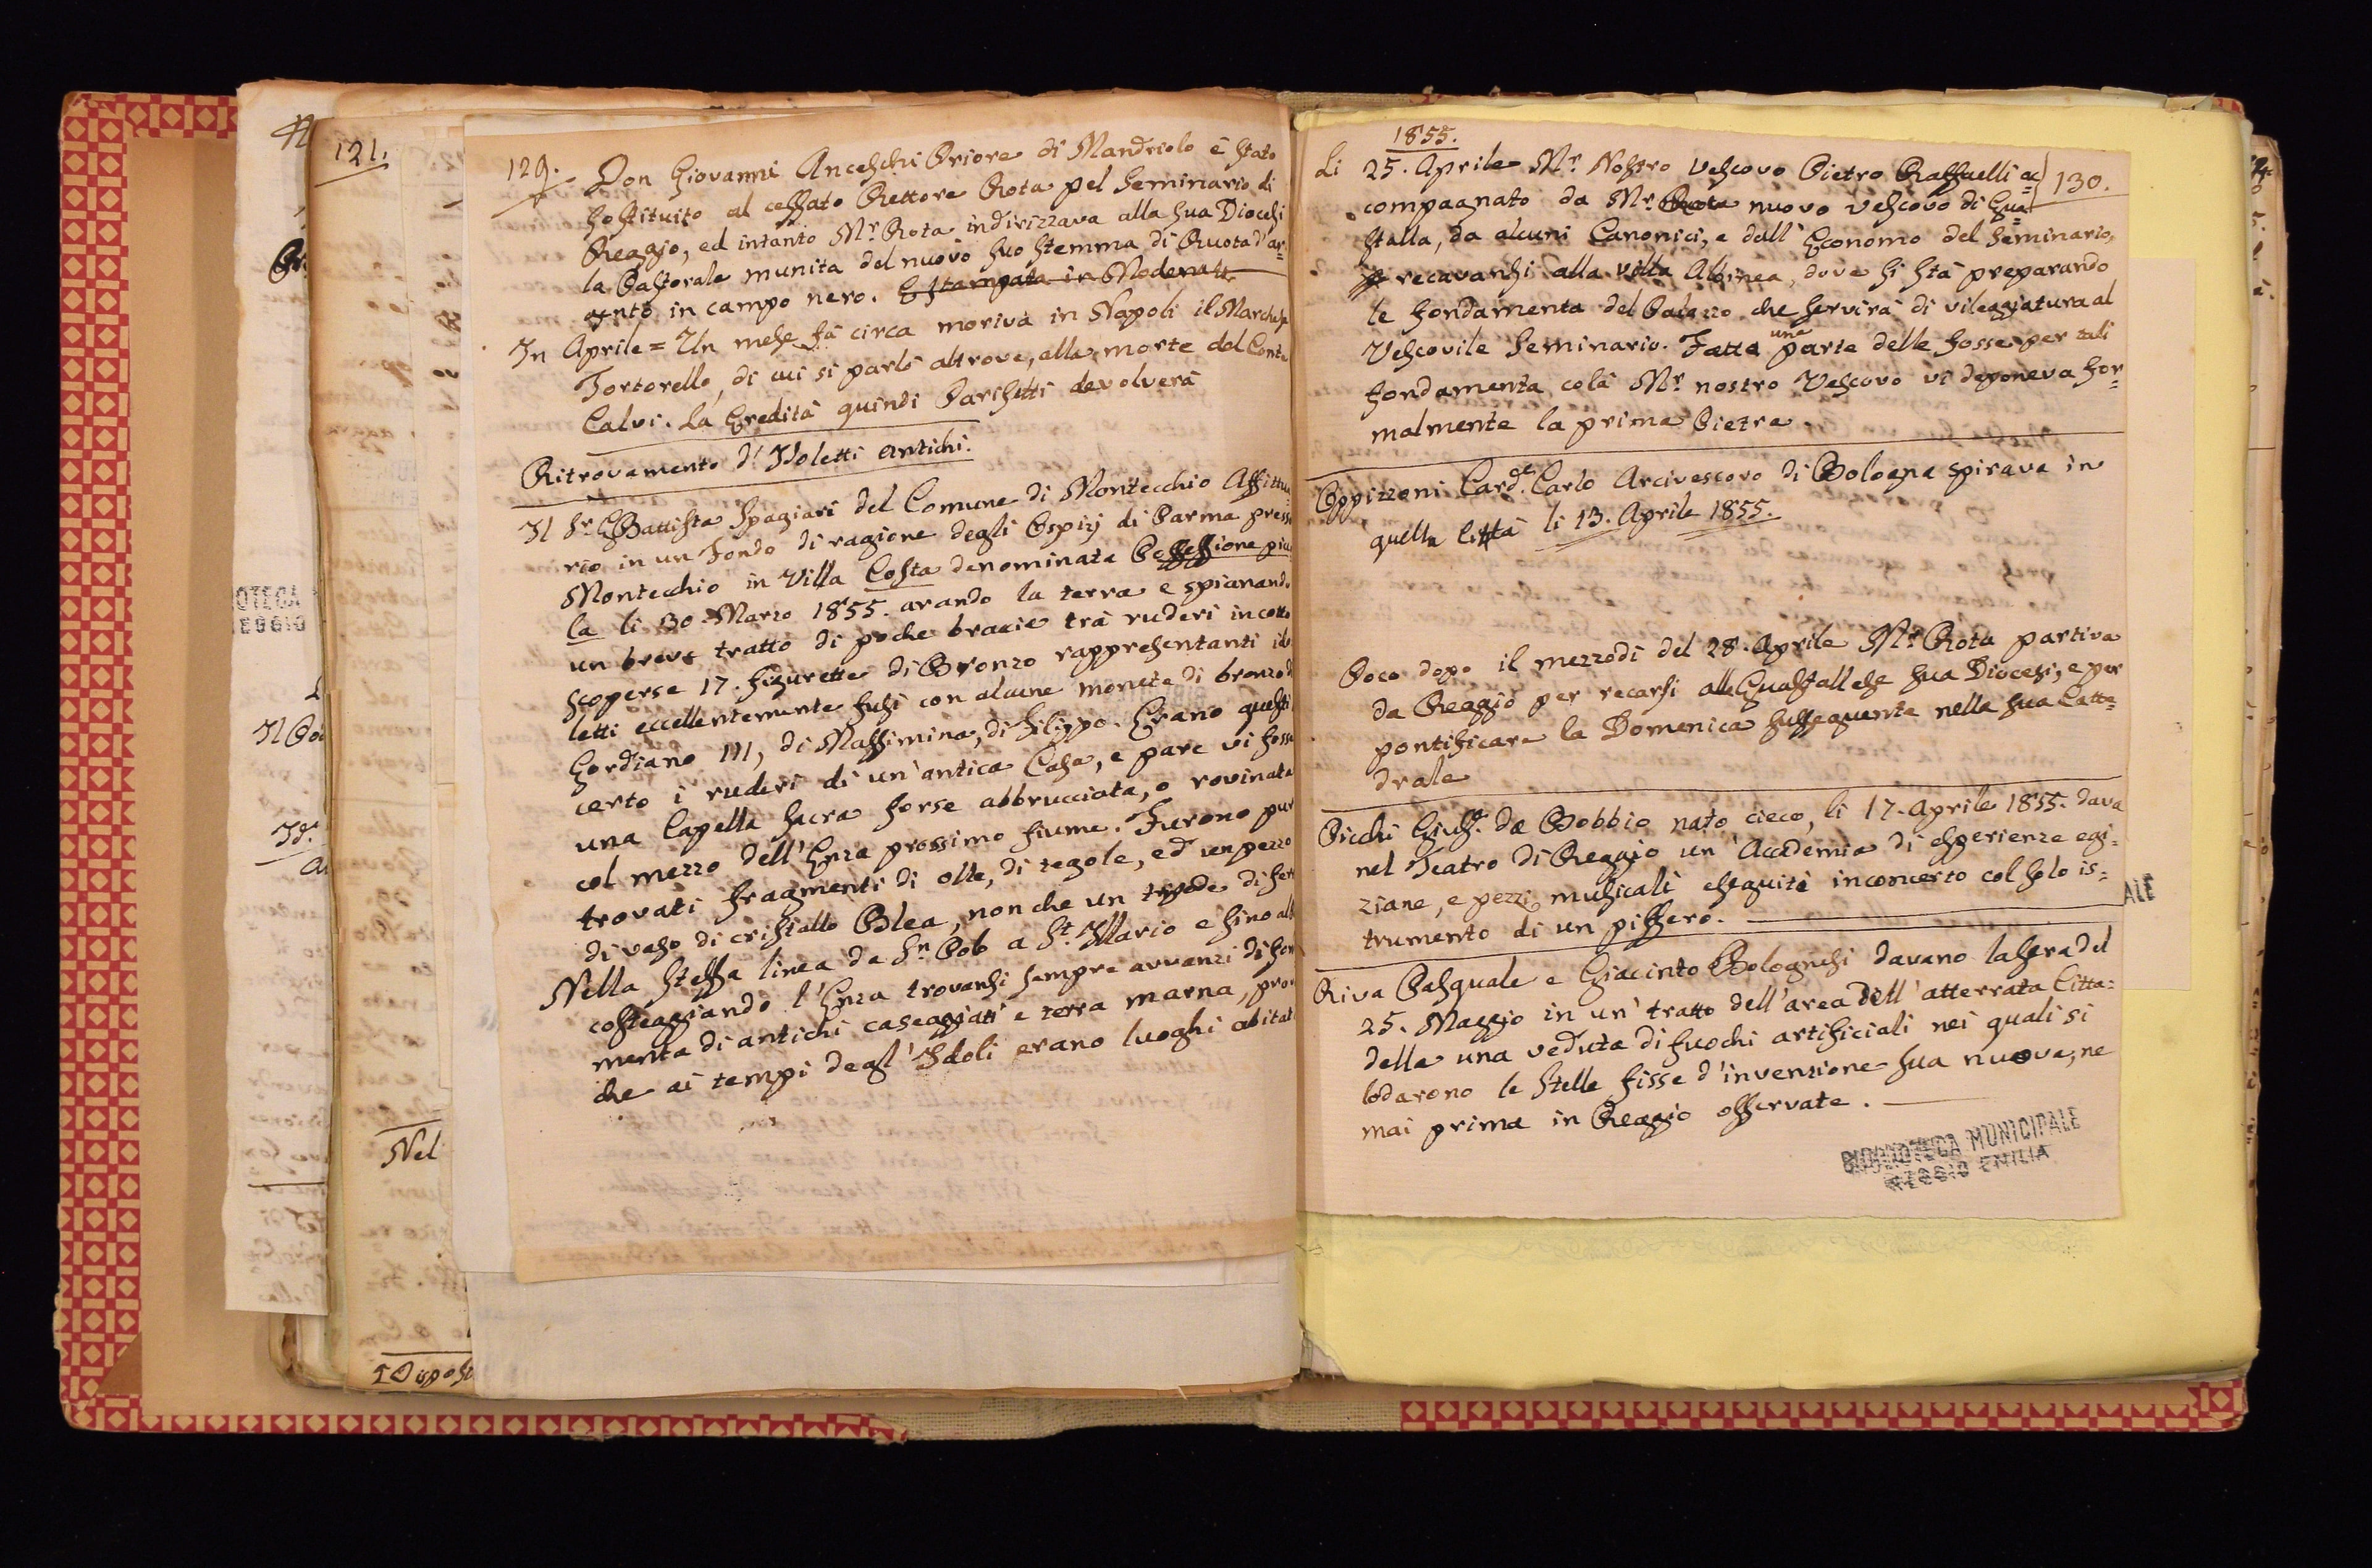 121.
129. Don Giovanni Anceschi Priore di Mandriolo è stato
sostituito al cessato Rettore Rota pel Seminario di
Reggio, ed intanto Mr. Rota indirizzava alla sua Diocesi
la Pastorale munita del nuovo suo stemma di Ruota d'ar=
gento in campo nero. E stampata in Modena
In Aprile = Un mese fà circa moriva in Napoli il Marchese
Tortorello, di cui si parlò altrove, alla morte del Conte
Calvi. La Eredità quindi Parisetti devolverà
Ritrovamento d'Idoletti antichi.
Il Sr. GBattista Spagiari del Comune di Montecchio Affittua
rio in un Fondo di ragione degli Ospizj di Parma presso
Montecchio in Villa Costa denominata Possessione picco
la li 30. Marzo 1855. arando la terra e spianando
un breve tratto di poche bracie trà ruderi in cotto
scoperse 17. figurette di Bronzo rappresentanti ido
letti eccellentemente fusi con alcune monete di bronzo di
Gordiano III, di Massimino, di Filippo. Erano questi
certo i ruderi di un'antica Casa, e pare vi fosse
una Capella sacra forse abbrucciata, o rovinata
col mezzo dell'Enza prossimo fiume. Furono pur
trovati fragmenti di olle, di tegole, ed un pezzo
di vaso di cristallo Blea, non che un tripode di fer
Nella stessa linea da Sn. Pob a St. Illario e fino all
costeggiando l'Enza trovansi sempre avvanzi di fon
menta di antichi caseggiati e terra marna, prov
che ai tempi degl'Idoli erano luoghi abitati
Il
Id.
Nel
1855.
Li 25. Aprile Mr. Nostro Vescovo Pietro Raffaelli ac= 130.
compagnato da Mr. Rota nuovo Vescovo di Gua=
stalla, da alcuni Canonici, e dall'Economo del Seminario,
recavansi alla villa Albinea, dove si stà preparando
le fondamenta del Palazzo che servirà di vileggiatura al
Vescovile Seminario. Fatta una parte delle fosse per tali
fondamenta colà Mr. nostro Vescovo vi deponeva for=
malmente la prima Pietra.
Oppizzoni Cardle. Carlo Arcivescovo di Bologna spirava in
quella Città li 13. Aprile 1855.
Poco dopo il mezzodì del 28. Aprile Mr. Rota partiva
da Reggio per recarsi alla Guastallese sua Diocesi, e per
pontificare la Domenica sussequente nella sua Catte=
drale
Picchi Giuse. da Bobbio nato cieco, li 17. Aprile 1855. dava
nel Teatro di Reggio un'Accademia di esperienze egi=
ziane, e pezzi musicali eseguiti in concerto col solo is=
trumento di un piffero.
Riva Pasquale e Giacinto Bolognesi davano la sera del
25. Maggio in un tratto dell'area dell'atterrata Citta=
della una veduta di fuochi artificiali nei quali si
lodarono le Stelle fisse d'invenzione sua nuova, ne
mai prima in Reggio osservate.
BIBLIOTECA MUNICIPALE
REGGIO EMILIA